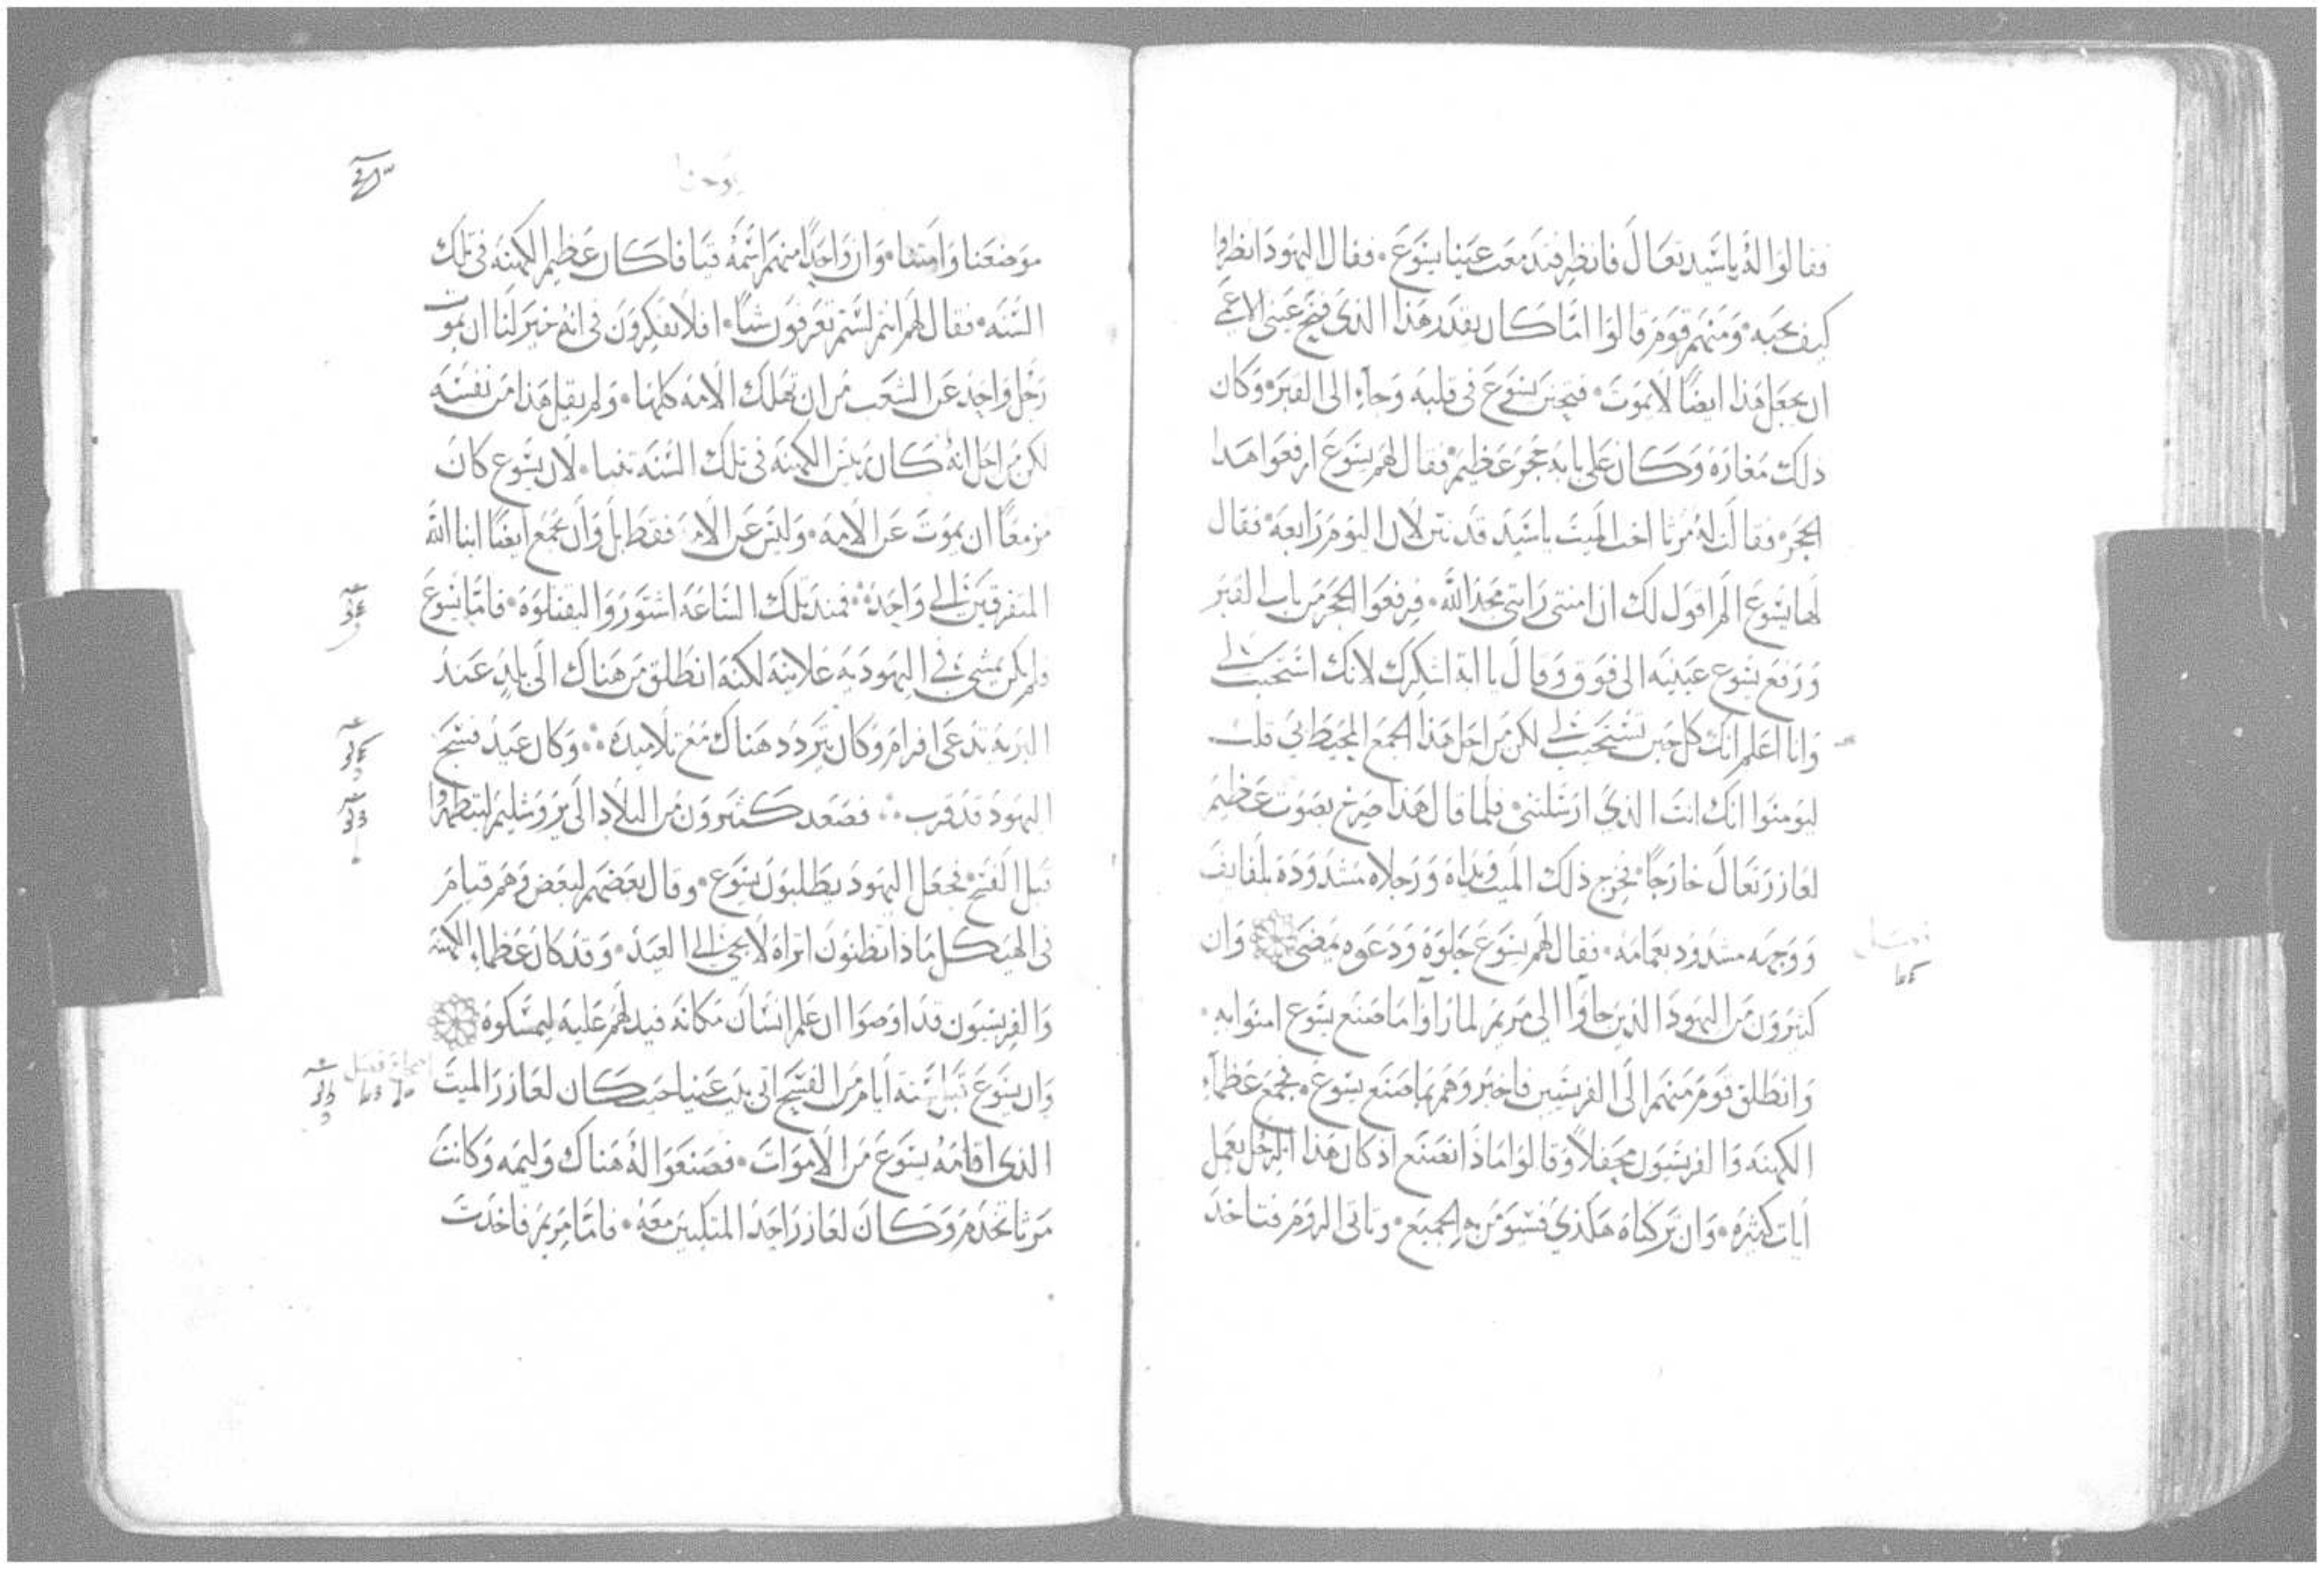 فقالوا له ياسيد تعال فانظر فدمعت عينا يسوع • فقال اليهود انظروا
كيف يحبه • ومنهم قوم قالوا اما كان يقدر هذا الذي فتح عيني الاعمى
ان يجعل هذا ايضًا لا يموت • فتحنن يسوع في قلبه وجاء الى القبر • وكان
ذلك مغارة وكان على بابه حجر عظيم • فقال لهم يسوع ارفعوا هدا
الحجر • فقالت له مرثا اخت الميت ياسيد قد نتن لان اليوم رابعه • فقال
لها يسوع الم اقول لك ان امنتي رايتي مجد الله • فرفعوا الحجر من باب القبر
ورفع يسوع عينيه الى فوق وقال يا ابة اشكرك لانك استجبت لي
وانا اعلم انك كل حين تستجيب لي لكن من اجل هذا الجمع المحيط بي قلت
ليومنوا انك انت الذي ارسلتني • فلما قال هذا صرخ بصوت عظيم
لعازر تعال خارجًا • فخرج ذلك الميت ويداه ورجلاه مشدودة بلفايف
ووجهه مشدود بعمامه • فقال لهم يسوع حلوه ودعوه يمضى وان
كثيرون من اليهود الذين جاوا الى مريم لما راوا ما صنع يسوع امنوا به •
وانطلق قوم منهم الى الفريسيين فاخبروهم بما صنع يسوع • فجمع عظماء
الكهنه والفريسيون محفلًا وقالوا ماذا نصنع اذ كان هذا الرجل يعمل
ايات كثيره • وان تركناه هكذي فسيومن به الجميع • وتاتى الروم فتاخد
يوحنا
موضعنا وامتنا • وان واحدًا منهم اسمه قيافا كان عظيم الكهنه في تلك
السنه • فقال لهم انتم لستم تعرفون شيًا • افلا تفكرون في انه خير لنا ان يموت
رجل واحد عن الشعب من ان تهلك الامه كلها • ولم يقل هذا من نفسه
لكن من اجل انه كان رييس الكهنه في تلك السنه تنبا • لان يسوع كان
مزمعًا ان يموت عن الامه • وليس عن الامه فقط بل وان يجمع ايضًا ابنا الله
المتفرقين الى واحد فمند تلك الساعه استوروا ليقتلوه • فاما يسوع
ولم يكن يمشي في اليهوديه علانيه لكنه انطلق من هناك الى بلد عند
البريه تدعى افرام وكان يتردد هناك مع تلاميده وكان عيد فسح
اليهود قد قرب فصعد كثيرون من البلاد الى يروشليم ليتطهروا
قبل الفسح • فجعل اليهود يطلبون يسوع • وقال بعضهم لبعض وهم قيام
في الهيكل ماذا تظنون اتراه لا يجي الى العيد • وقد كان عظماء الكهنه
والفريسيون قد اوصوا ان علم انسان مكانه فيدلهم عليه ليمسكوه
وان يسوع قبل ستة ايام من الفسح اتى بيت عنيا حيث كان لعازر الميت
الذي اقامه يسوع من الاموات • فصنعوا له هناك وليمه وكانت
مرثا تخدم وكان لعازر احد المتكيين معه • فاما مريم فاخدت